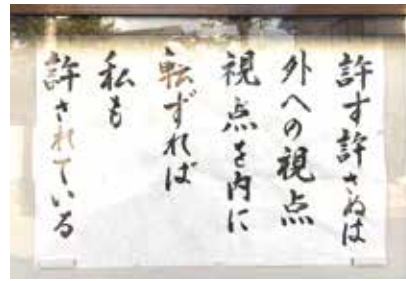 許す許さぬは
外への視点
視点を内に
転ずれば
私も
許されている